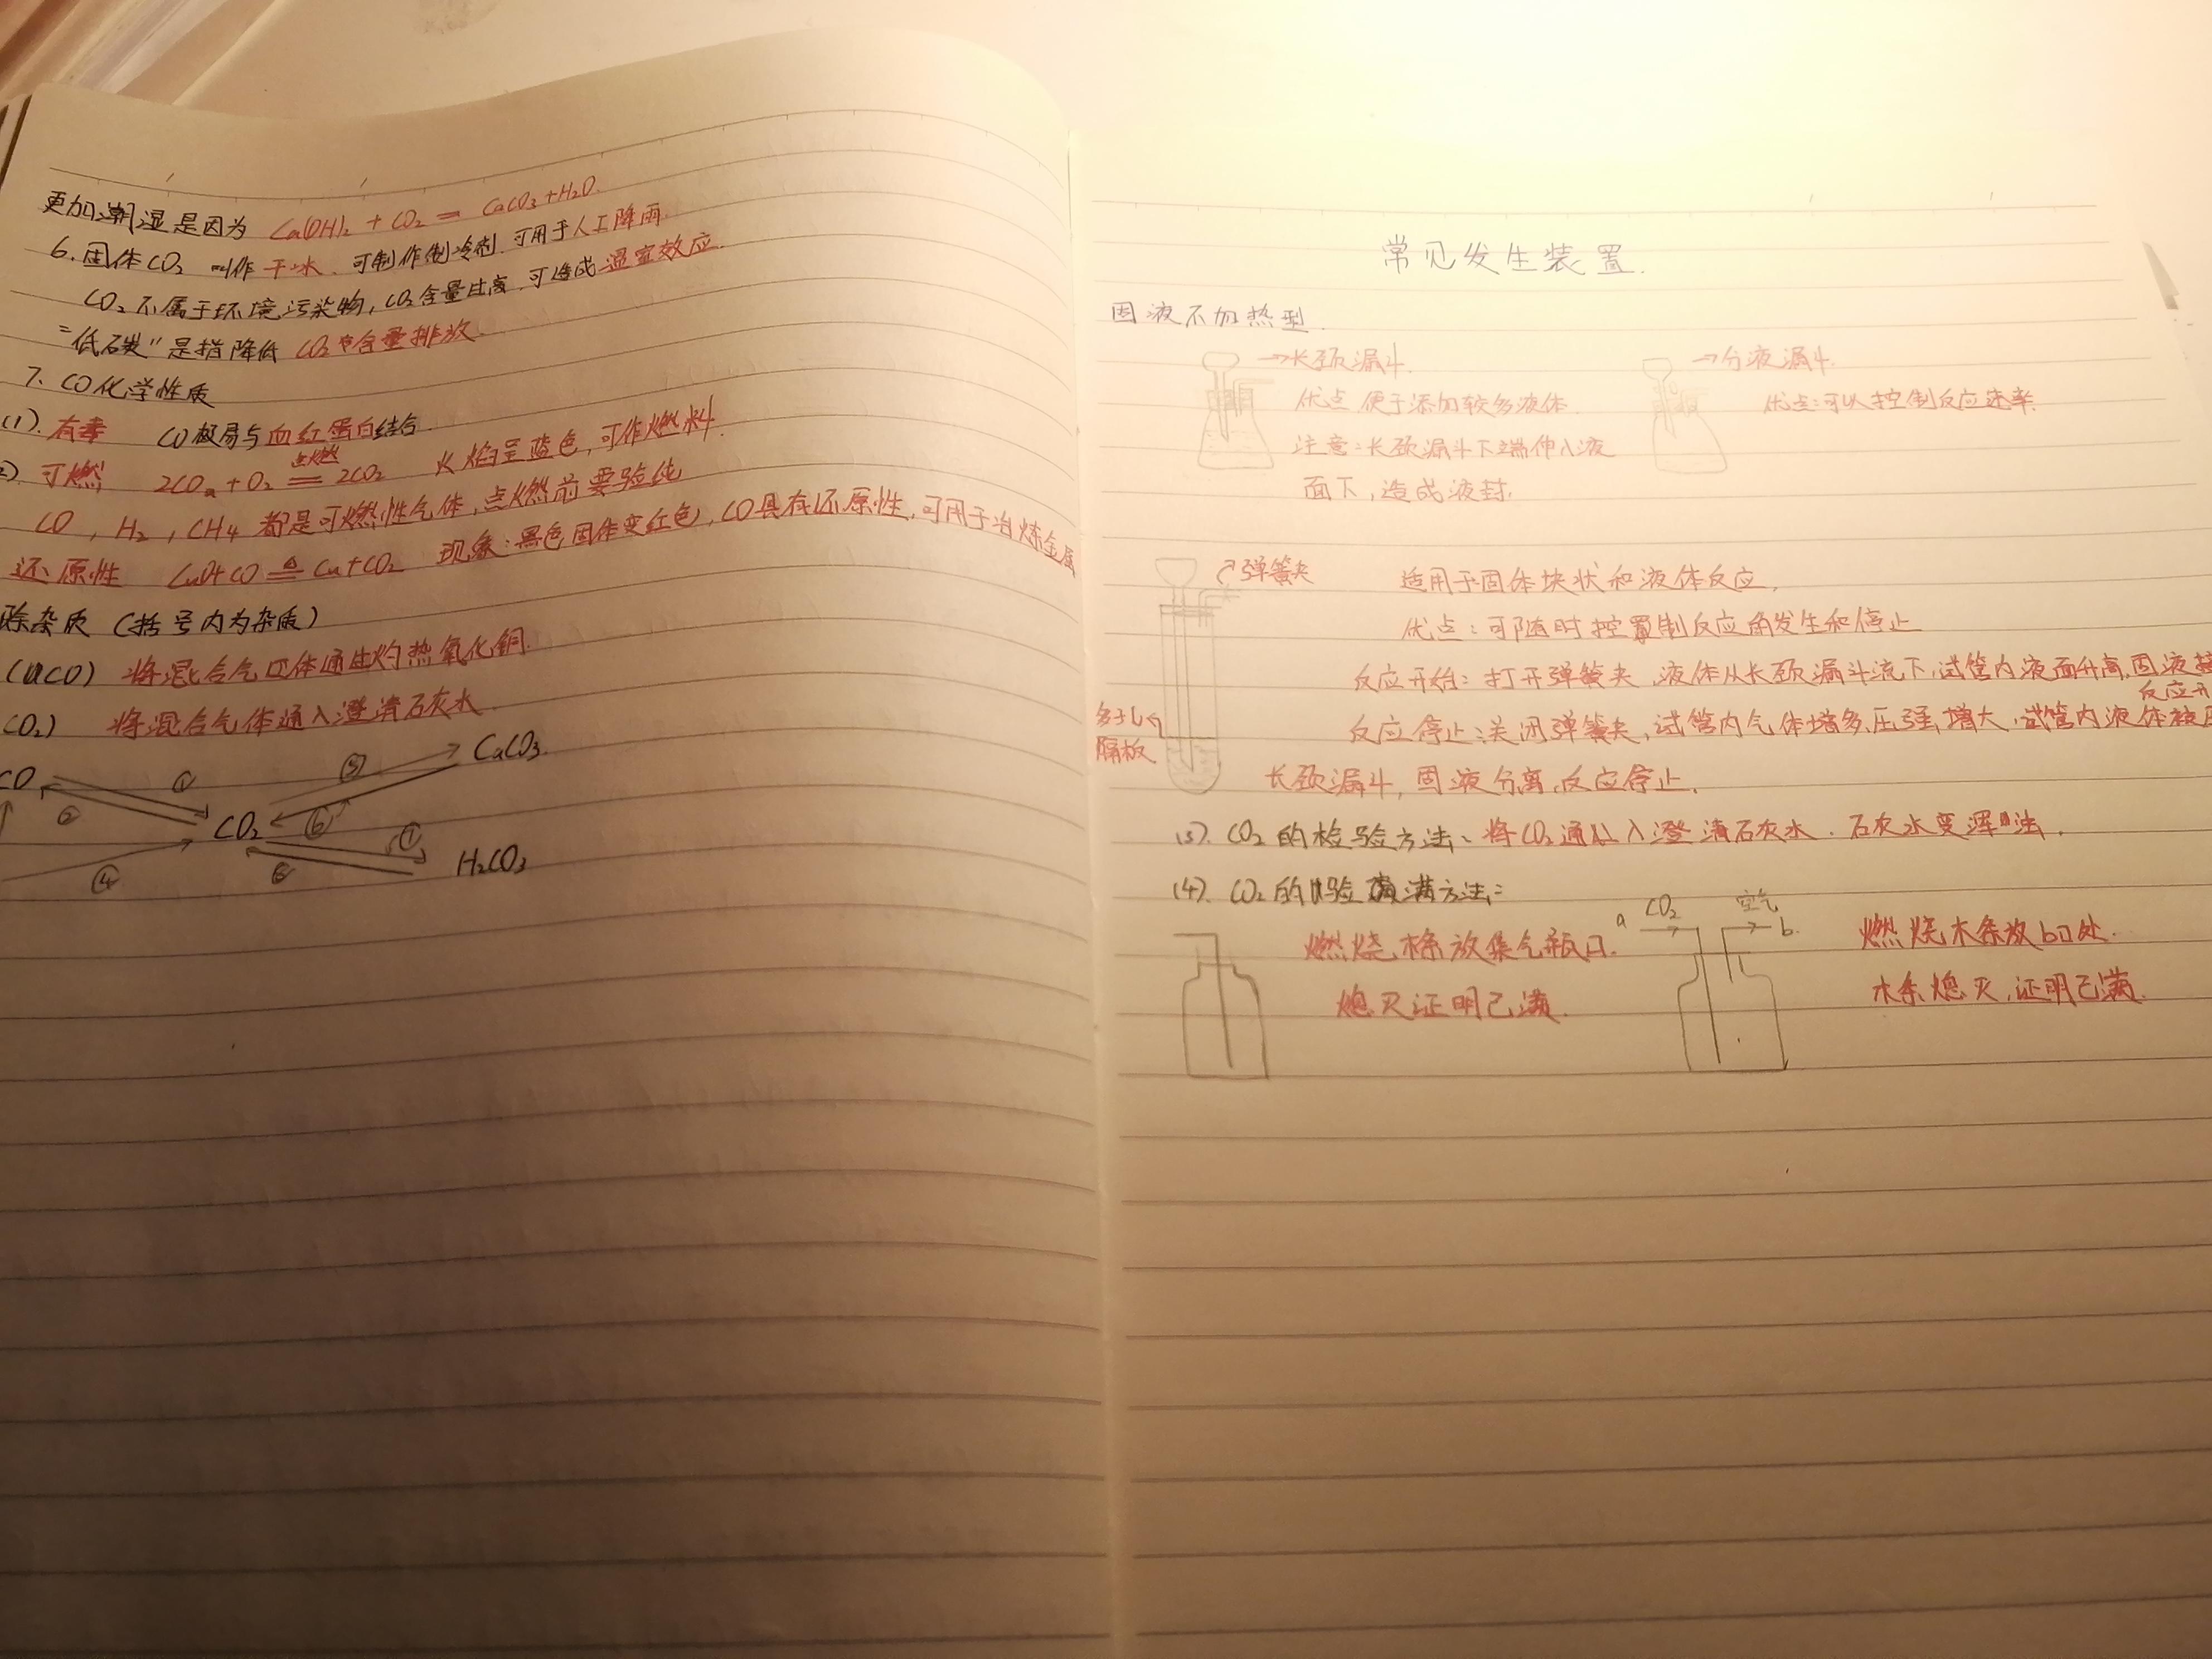 更加潮湿是因为 Ca(OH)₂ + CO₂ = CaCO₃+H₂O.
6.固体CO₂ 叫作干冰、可制作制冷剂.可用于人工降雨.
CO₂不属于环境污染物,CO₂含量过高.可造成温室效应.
"低碳"是指降低 CO₂ 含量排放.
7、CO化学性质
(1).有毒 CO极易与血红蛋白结合.
可燃 2CO + O₂ 点燃 = 2CO₂ 火焰呈蓝色,可作燃料.
CO,H₂,CH₄都是可燃性气体,点燃前要验纯
还原性 CuO+CO △ = Cu+CO₂ 现象:黑色固体变红色,CO具有还原性,可用于冶炼金属
除杂质(括号内为杂质)
(CO) 将混合气体通过灼热氧化铜.
CO₂) 将混合气体通入澄清石灰水.
CO ① ② ⑤ CaCO₃.
CO₂ ⑥ ⑦
④ ⑧ H₂CO₃
常见发生装置.
固液不加热型.
→长颈漏斗.
优点 便于添加较多液体.
注意:长颈漏斗下端伸入液
面下,造成液封.
→分液漏斗.
优点:可以控制反应速率.
弹簧夹
多孔
隔板
适用于固体块状和液体反应.
优点:可随时控制反应的发生和停止
反应开始:打开弹簧夹,液体从长颈漏斗流下,试管内液面升高,固液接
反应开
反应停止:关闭弹簧夹,试管内气体增多,压强增大,试管内液体被压
长颈漏斗,固液分离,反应停止.
(3).CO₂的检验方法、将CO₂通入澄清石灰水.石灰水变浑浊.
(4).CO₂的验满方法:
燃烧木条放集气瓶口.
熄灭证明已满.
a CO₂ 空气 b.
燃烧木条放b口处.
木条熄灭,证明已满.